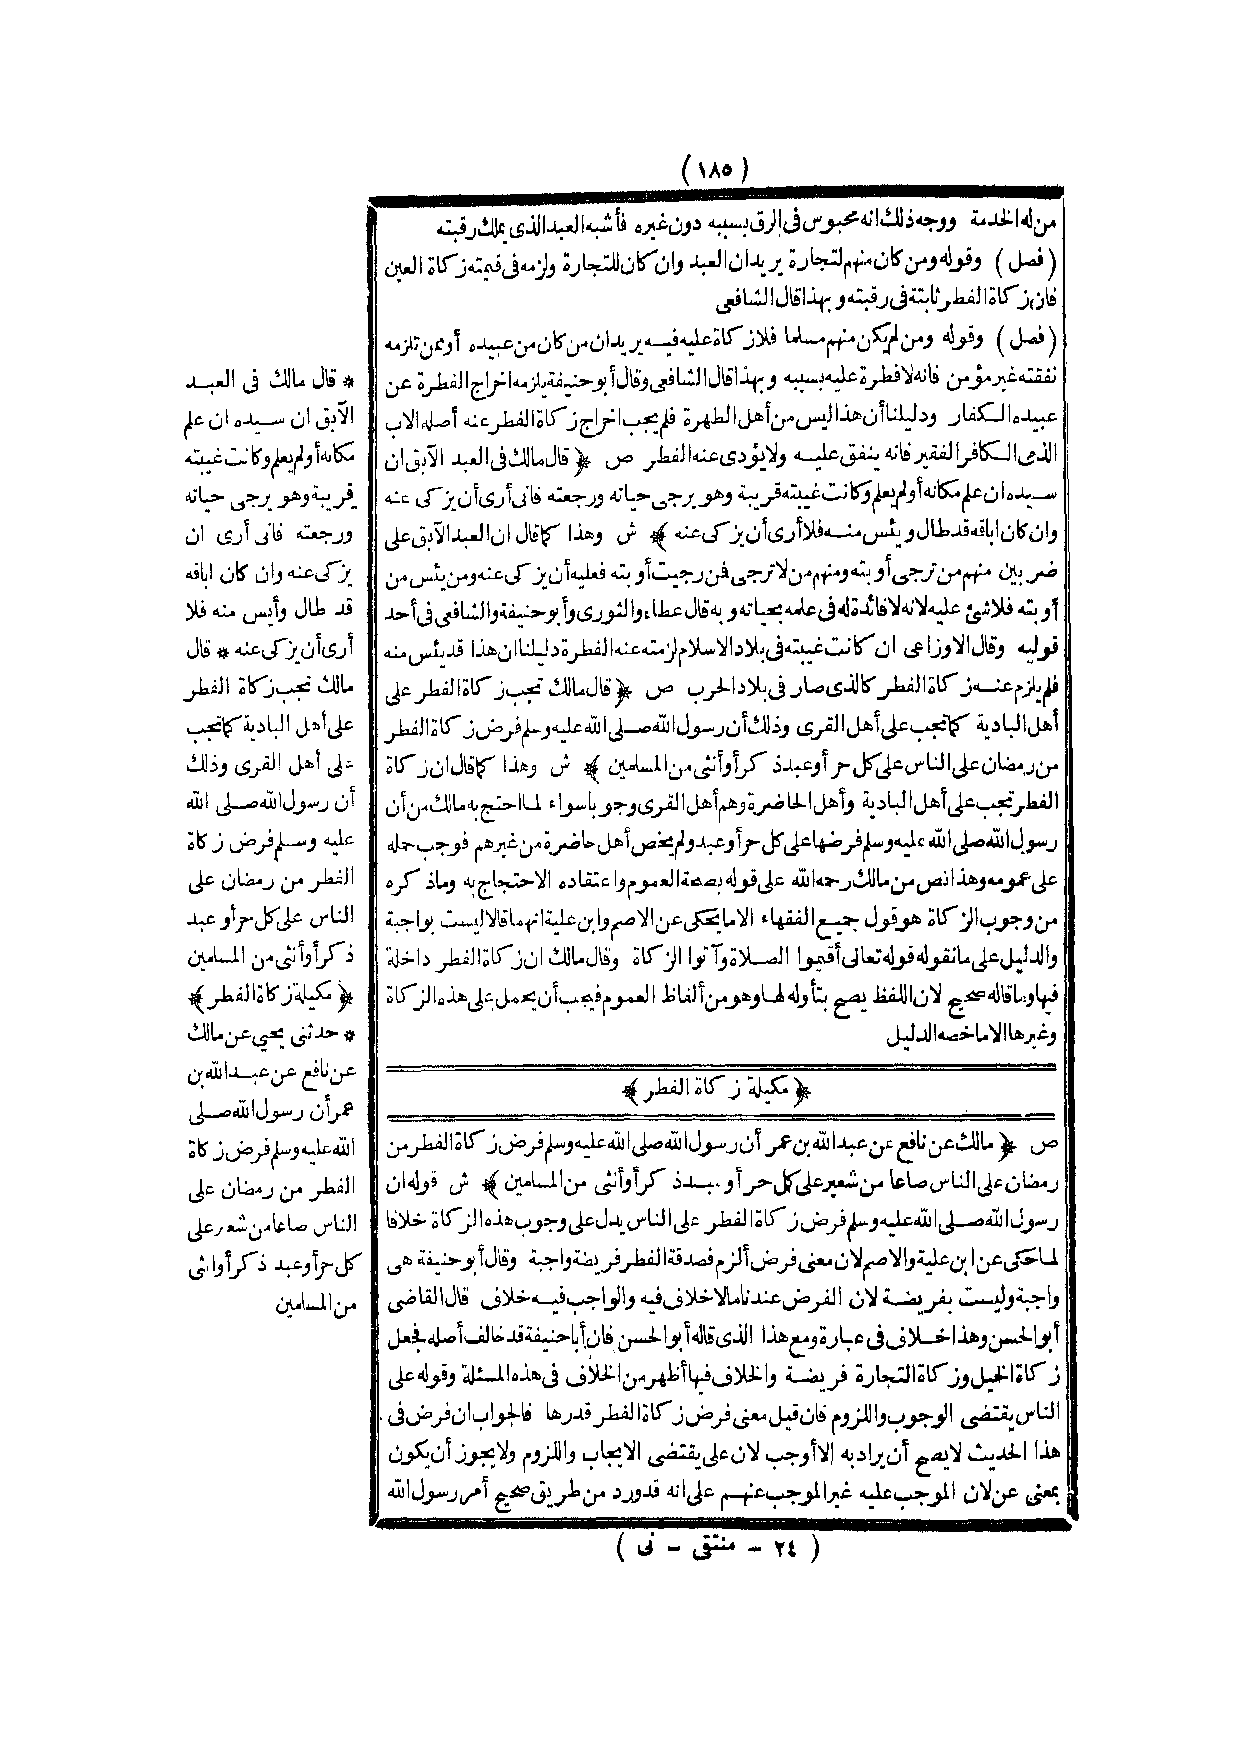 ( ١٨٥ )
من له الخدمة ووجه ذلك انه محبوس فى الرق بسببه دون غيره فأشبه العبد الذى يملك رقبته
( فصل ) وقوله ومن كان منهم لتجارة يريد ان العبد وان كان للتجارة ولزمه فى قيمته زكاة العين
فان زكاة الفطر ثابتة فى رقبته وبهذا قال الشافعى
( فصل ) وقوله ومن لم يكن منهم مسلما فلا زكاة عليه فيه يريد ان من كان من عبيده أو ممن تلزمه
نفقته غير مؤمن فانه لا فطرة عليه بسببه وبهذا قال الشافعى وقال أبو حنيفة يلزمه اخراج الفطرة عن
عبيده الكفار ودليلنا أن هذا ليس من أهل الطهرة فلم يجب اخراج زكاة الفطر عنه أصله الاب
الذى الكافر الفقير فانه ينفق عليه ولا يؤدى عنه الفطر ص ﴿ قال مالك فى العبد الآبق ان
سيده ان علم مكانه أو لم يعلم وكانت غيبته قريبة وهو يرجى حياته ورجعته فانى أرى أن يزكى عنه
وان كان اباقه قد طال ويئس منه فلا أرى أن يزكى عنه ﴾ ش وهذا كما قال ان العبد الآبق على
ضربين منهم من ترجى أوبته ومنهم من لا ترجى فمن رجيت أوبته فعليه أن يزكى عنه ومن يئس من
أوبته فلا شئ عليه لانه لا فائدة له فى علمه بحياته وبه قال عطاء والثورى وأبو حنيفة والشافعى فى أحد
قوليه وقال الاوزاعى ان كانت غيبته فى بلاد الاسلام لزمته عنه الفطرة دليلنا ان هذا قد يئس منه
فلم يلزم عنه زكاة الفطر كالذى صار فى بلاد الحرب ص ﴿ قال مالك تجب زكاة الفطر على
أهل البادية كما تجب على أهل القرى وذلك أن رسول الله صلى الله عليه وسلم فرض زكاة الفطر
من رمضان على الناس على كل حر أو عبد ذكر أو أنثى من المسلمين ﴾ ش وهذا كما قال ان زكاة
الفطر تجب على أهل البادية وأهل الحاضرة وهم أهل القرى وجوبا سواء لما احتج به مالك من أن
رسول الله صلى الله عليه وسلم فرضها على كل حر أو عبد ولم يخص أهل حاضرة من غيرهم فوجب حمله
على عمومه وهذا نص من مالك رحمه الله على قوله بصحة العموم واعتقاده الاحتجاج به وما ذكره
من وجوب الزكاة هو قول جميع الفقهاء الا ما يحكى عن الاصم وابن علية انهما قالا ليست بواجبة
والدليل على ما نقوله قوله تعالى أقيموا الصلاة وآتوا الزكاة وقال مالك ان زكاة الفطر داخلة
فيها وما قاله صحيح لان اللفظ يصح بتأوله لها وهو من ألفاظ العموم فيجب أن يحمل على هذه الزكاة
وغيرها الا ما خصه الدليل
﴿ مكيلة زكاة الفطر ﴾
ص ﴿ مالك عن نافع عن عبد الله بن عمر أن رسول الله صلى الله عليه وسلم فرض زكاة الفطر من
رمضان على الناس صاعا من شعير على كل حر أو عبد ذكر أو أنثى من المسلمين ﴾ ش قوله ان
رسول الله صلى الله عليه وسلم فرض زكاة الفطر على الناس يدل على وجوب هذه الزكاة خلافا
لما حكى عن ابن علية والاصم لان معنى فرض ألزم فصدقة الفطر فريضة واجبة وقال أبو حنيفة هى
واجبة وليست بفريضة لان الفرض عندنا ما لا خلاف فيه والواجب فيه خلاف قال القاضى
أبو الحسن وهذا خلاف فى عبارة ومع هذا الذى قاله أبو الحسن فان أبا حنيفة قد خالف أصله فجعل
زكاة الخيل وزكاة التجارة فريضة والخلاف فيها أظهر من الخلاف فى هذه المسئلة وقوله على
الناس يقتضى الوجوب واللزوم فان قيل معنى فرض زكاة الفطر قدرها فالجواب ان فرض فى
هذا الحديث لا يصح أن يراد به الا أوجب لان على يقتضى الايجاب واللزوم ولا يجوز أن يكون
بمعنى عن لان الموجب عليه غير الموجب عنهم على انه قد ورد من طريق صحيح أمر رسول الله
* قال مالك فى العبد
الآبق ان سيده ان علم
مكانه أو لم يعلم وكانت غيبته
قريبة وهو يرجى حياته
ورجعته فانى أرى ان
يزكى عنه وان كان اباقه
قد طال وأيس منه فلا
أرى أن يزكى عنه * قال
مالك تجب زكاة الفطر
على أهل البادية كما تجب
على أهل القرى وذلك
أن رسول الله صلى الله
عليه وسلم فرض زكاة
الفطر من رمضان على
الناس على كل حر أو عبد
ذكر أو أنثى من المسلمين
﴿ مكيلة زكاة الفطر ﴾
* حدثنى يحيى عن مالك
عن نافع عن عبد الله بن
عمر أن رسول الله صلى
الله عليه وسلم فرض زكاة
الفطر من رمضان على
الناس صاعا من شعير على
كل حر أو عبد ذكر أو انثى
من المسلمين
( ٢٤ - منتقى - نى )